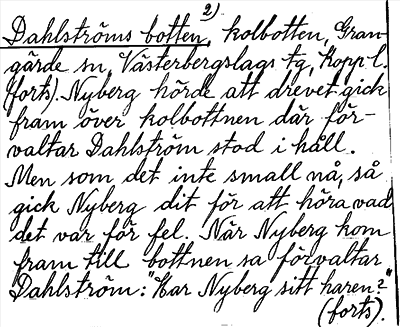 2)
Dahlströms botten, kolbotten, Gran-
gärde sn, Västerbergslags tg, Kopp. l.
(forts). Nyberg hörde att drevet gick
fram över kolbottnen där för-
valtar Dahlström stod i håll.
Men som det inte small nå, så
gick Nyberg dit för att höra vad
det var för fel. När Nyberg kom
fram till bottnen sa förvaltar
Dahlström: "Har Nyberg sitt haren?"
(forts).